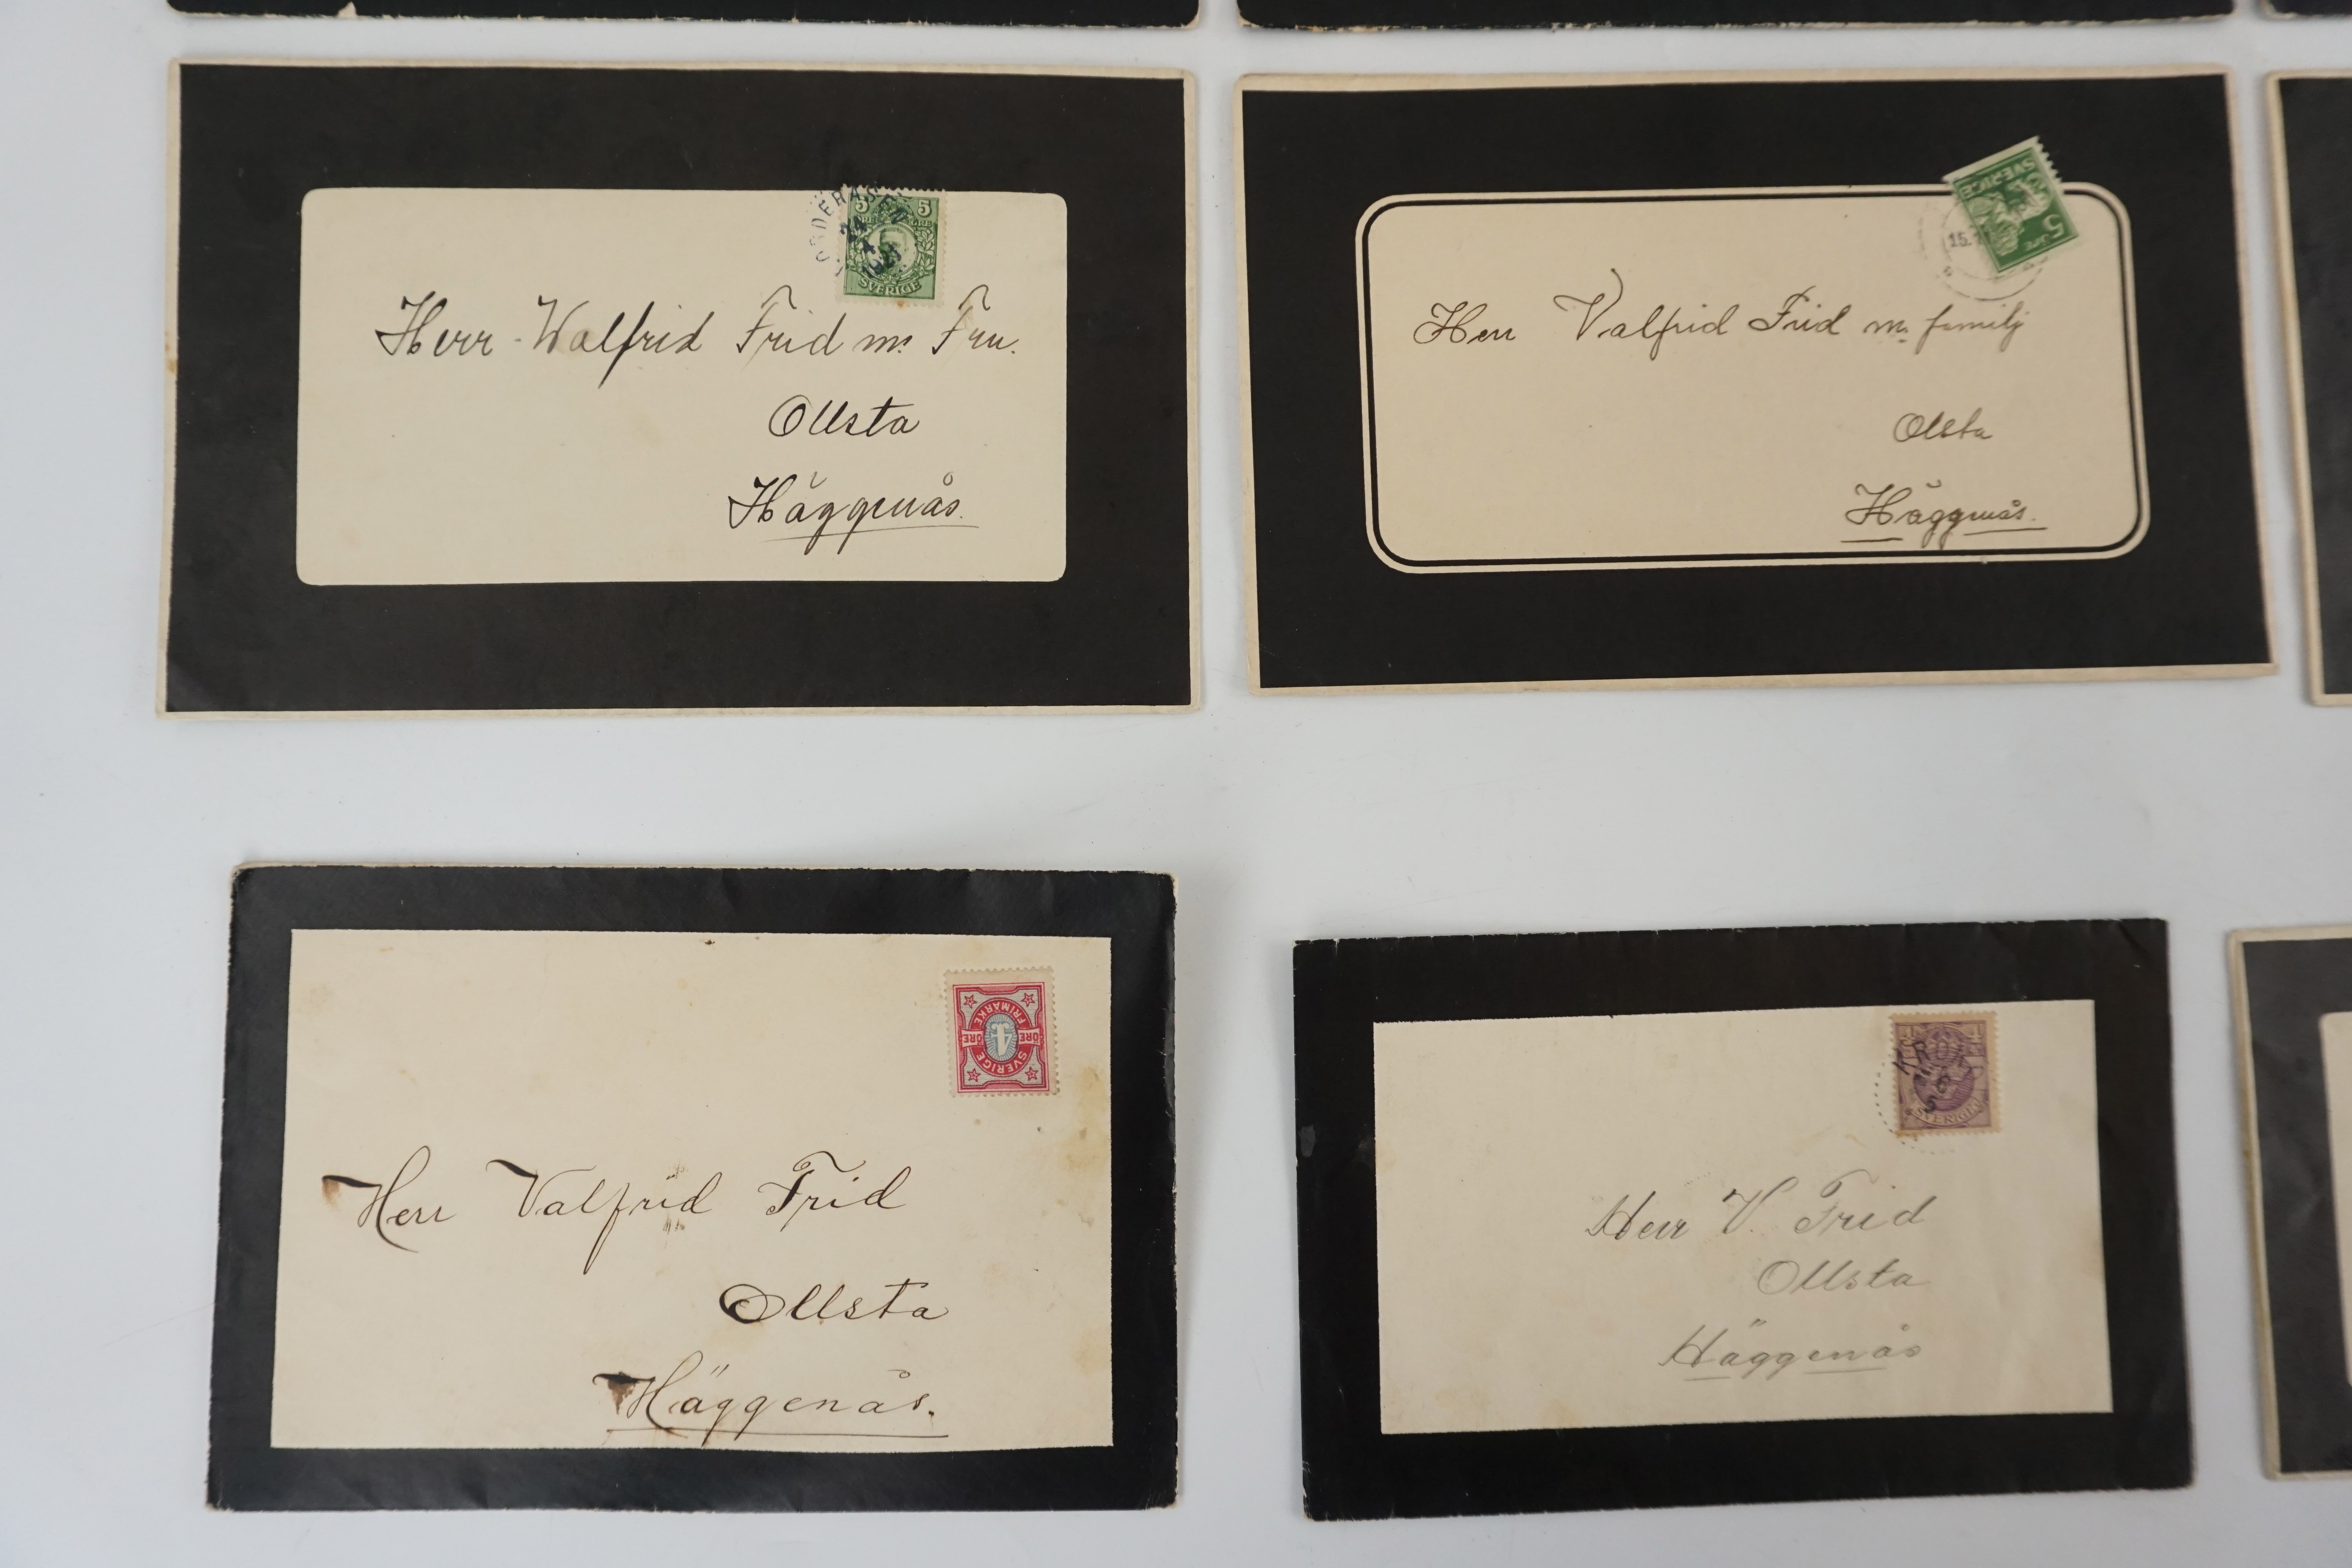 5 5
SVERIGE
24
4
1921
Herr Walfrid Frid m. Fru.
Ollsta
Häggenås.
SVERIGE
5
15.
Herr Valfrid Frid m. familj
Olsta
Häggenås.
SVERIGE
4
ÖRE ÖRE
FRIMÄRKE
Herr Valfrid Frid
Ollsta
Häggenås.
4 4
SVERIGE
Herr V. Frid
Ollsta
Häggenås